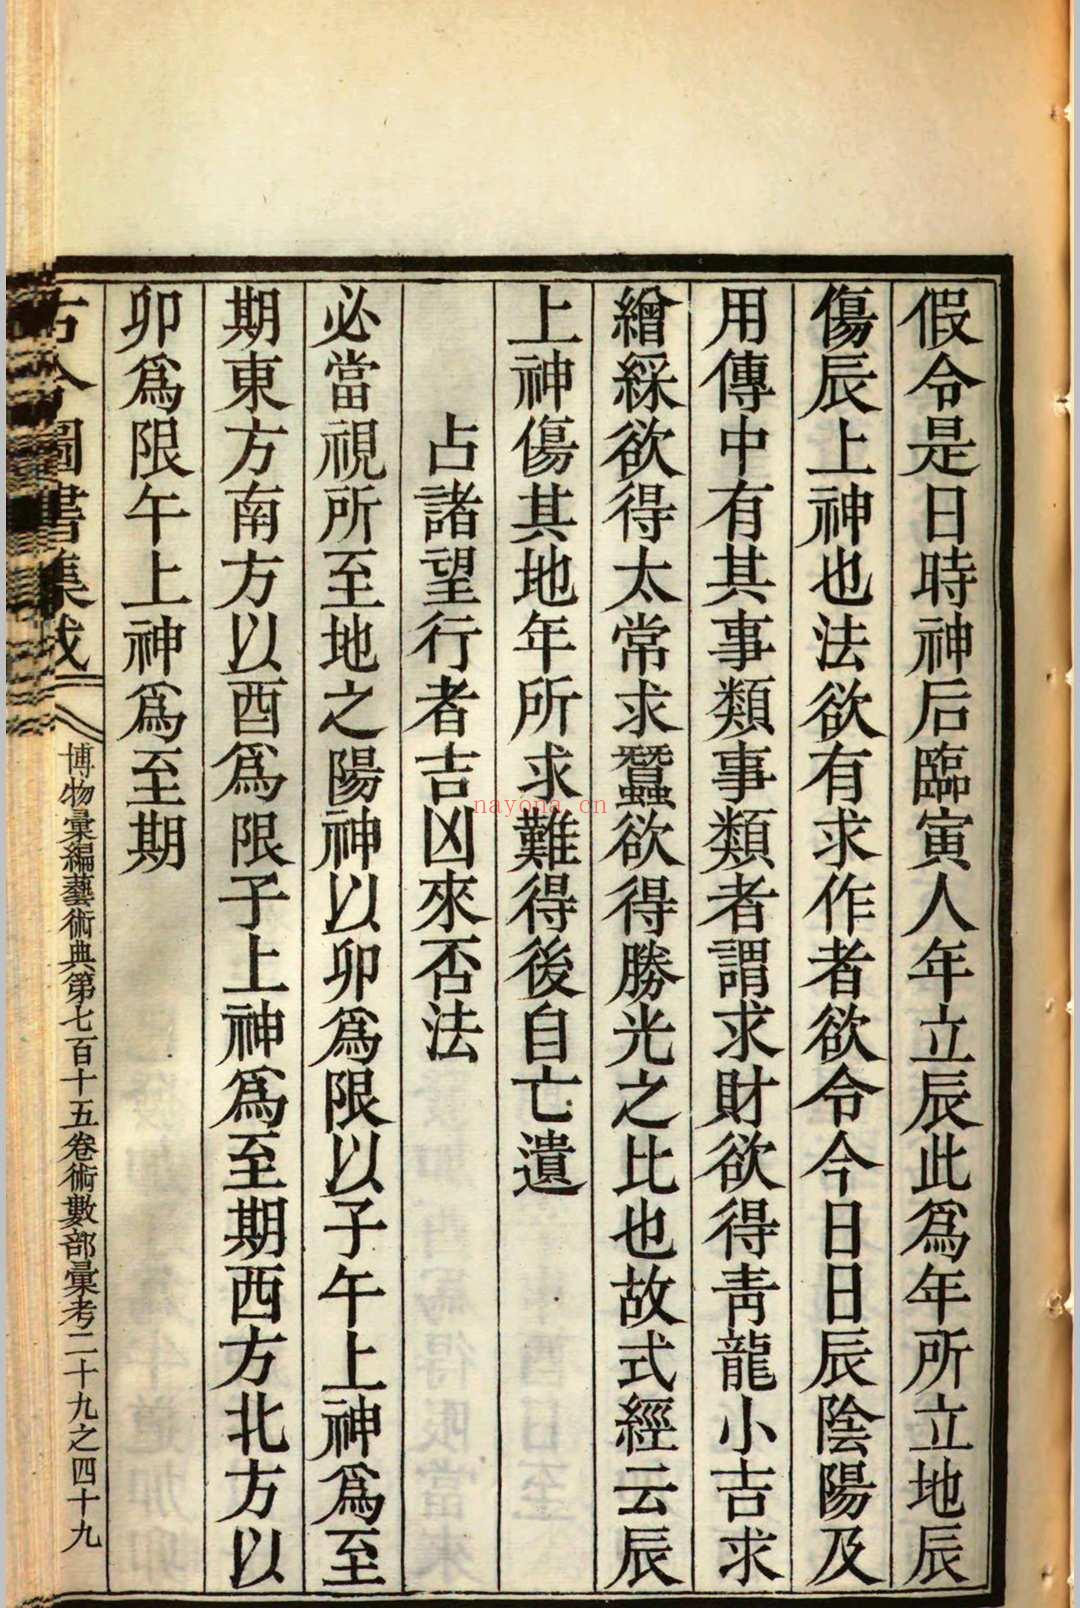 假令是日時神后臨寅人年立辰此爲年所立地辰
傷辰上神也法欲有求作者欲令今日日辰陰陽及
用傳中有其事類事類者謂求財欲得靑龍小吉求
繒綵欲得太常求蠶欲得勝光之比也故式經云辰
上神傷其地年所求難得後自亡遺
占諸望行者吉凶來否法
必當視所至地之陽神以卯爲限以子午上神爲至
期東方南方以酉爲限子上神爲至期西方北方以
卯爲限午上神爲至期
古今圖書集成
博物彙編藝術典第七百十五卷術數部彙考二十九之四十九
nayona.cn